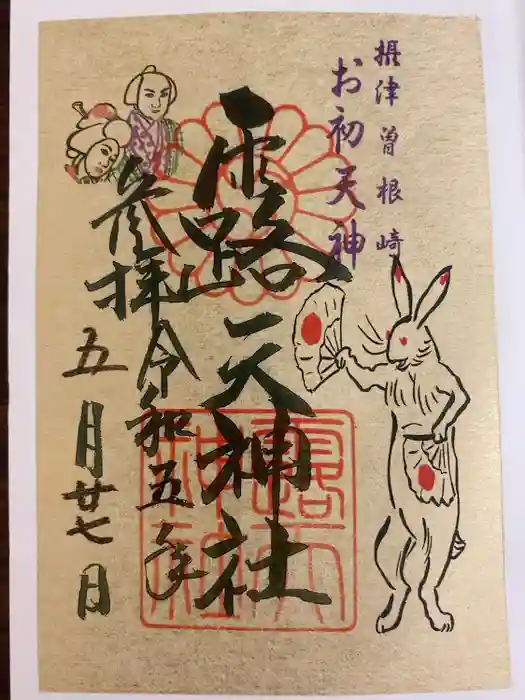 摂津 曽根崎
お初天神
露天神社
参拝
令和五年
五月廿七日
露天神社